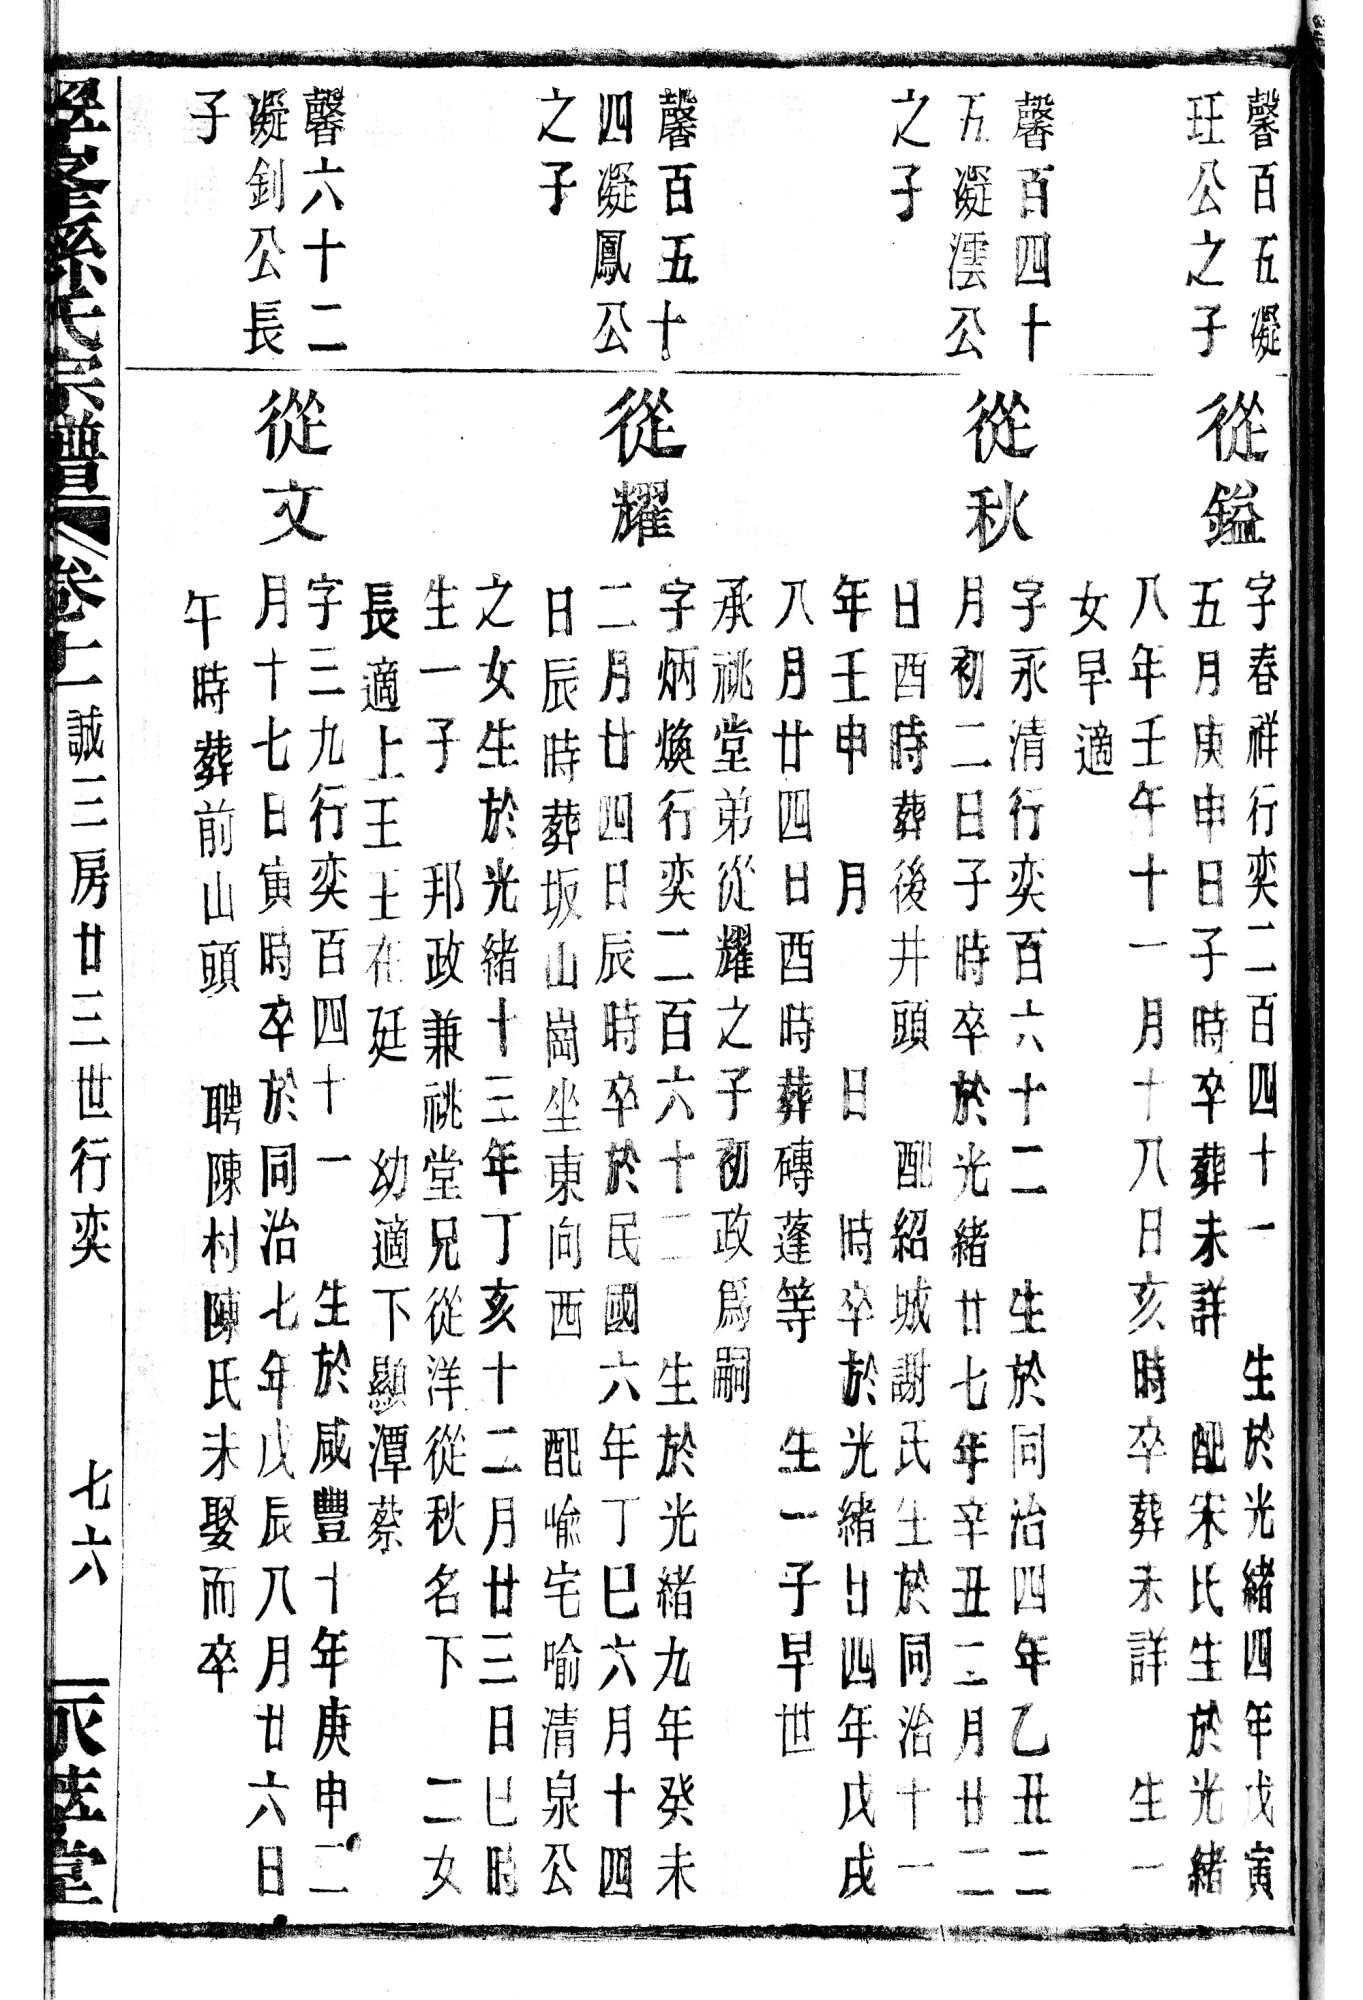 馨百五凝
玨公之子
馨百四十
五凝澐公
之子
馨百五十
四凝鳳公
之子
馨六十二
凝釗公長
子
從鎰
字春祥行奕二百四十一 生於光緒四年戊寅
五月庚申日子時卒葬未詳 配宋氏生於光緒
八年壬午十一月十八日亥時卒葬未詳 生一
女早適
從秋
字永清行奕百六十二 生於同治四年乙丑二
月初二日子時卒於光緒廿七年辛丑二月廿二
日酉時葬後井頭 配紹城謝氏生於同治十一
年壬申 月 日 時卒於光緒廿四年戊戌
八月廿四日酉時葬磚蓬等 生一子早世
承祧堂弟從耀之子初政爲嗣
從耀
字炳煥行奕二百六十二 生於光緒九年癸未
二月廿四日辰時卒於民國六年丁巳六月十四
日辰時葬坂山崗坐東向西 配喻宅喻清泉公
之女生於光緒十三年丁亥十二月廿三日巳時
生一子 邦政兼祧堂兄從洋從秋名下 二女
長適上王王在廷 幼適下顯潭蔡
從文
字三九行奕百四十一 生於咸豐十年庚申二
月十七日寅時卒於同治七年戊辰八月廿六日
午時葬前山頭 聘陳村陳氏未娶而卒
孫氏宗譜 卷十一 誠三房廿三世行奕 七六 堂